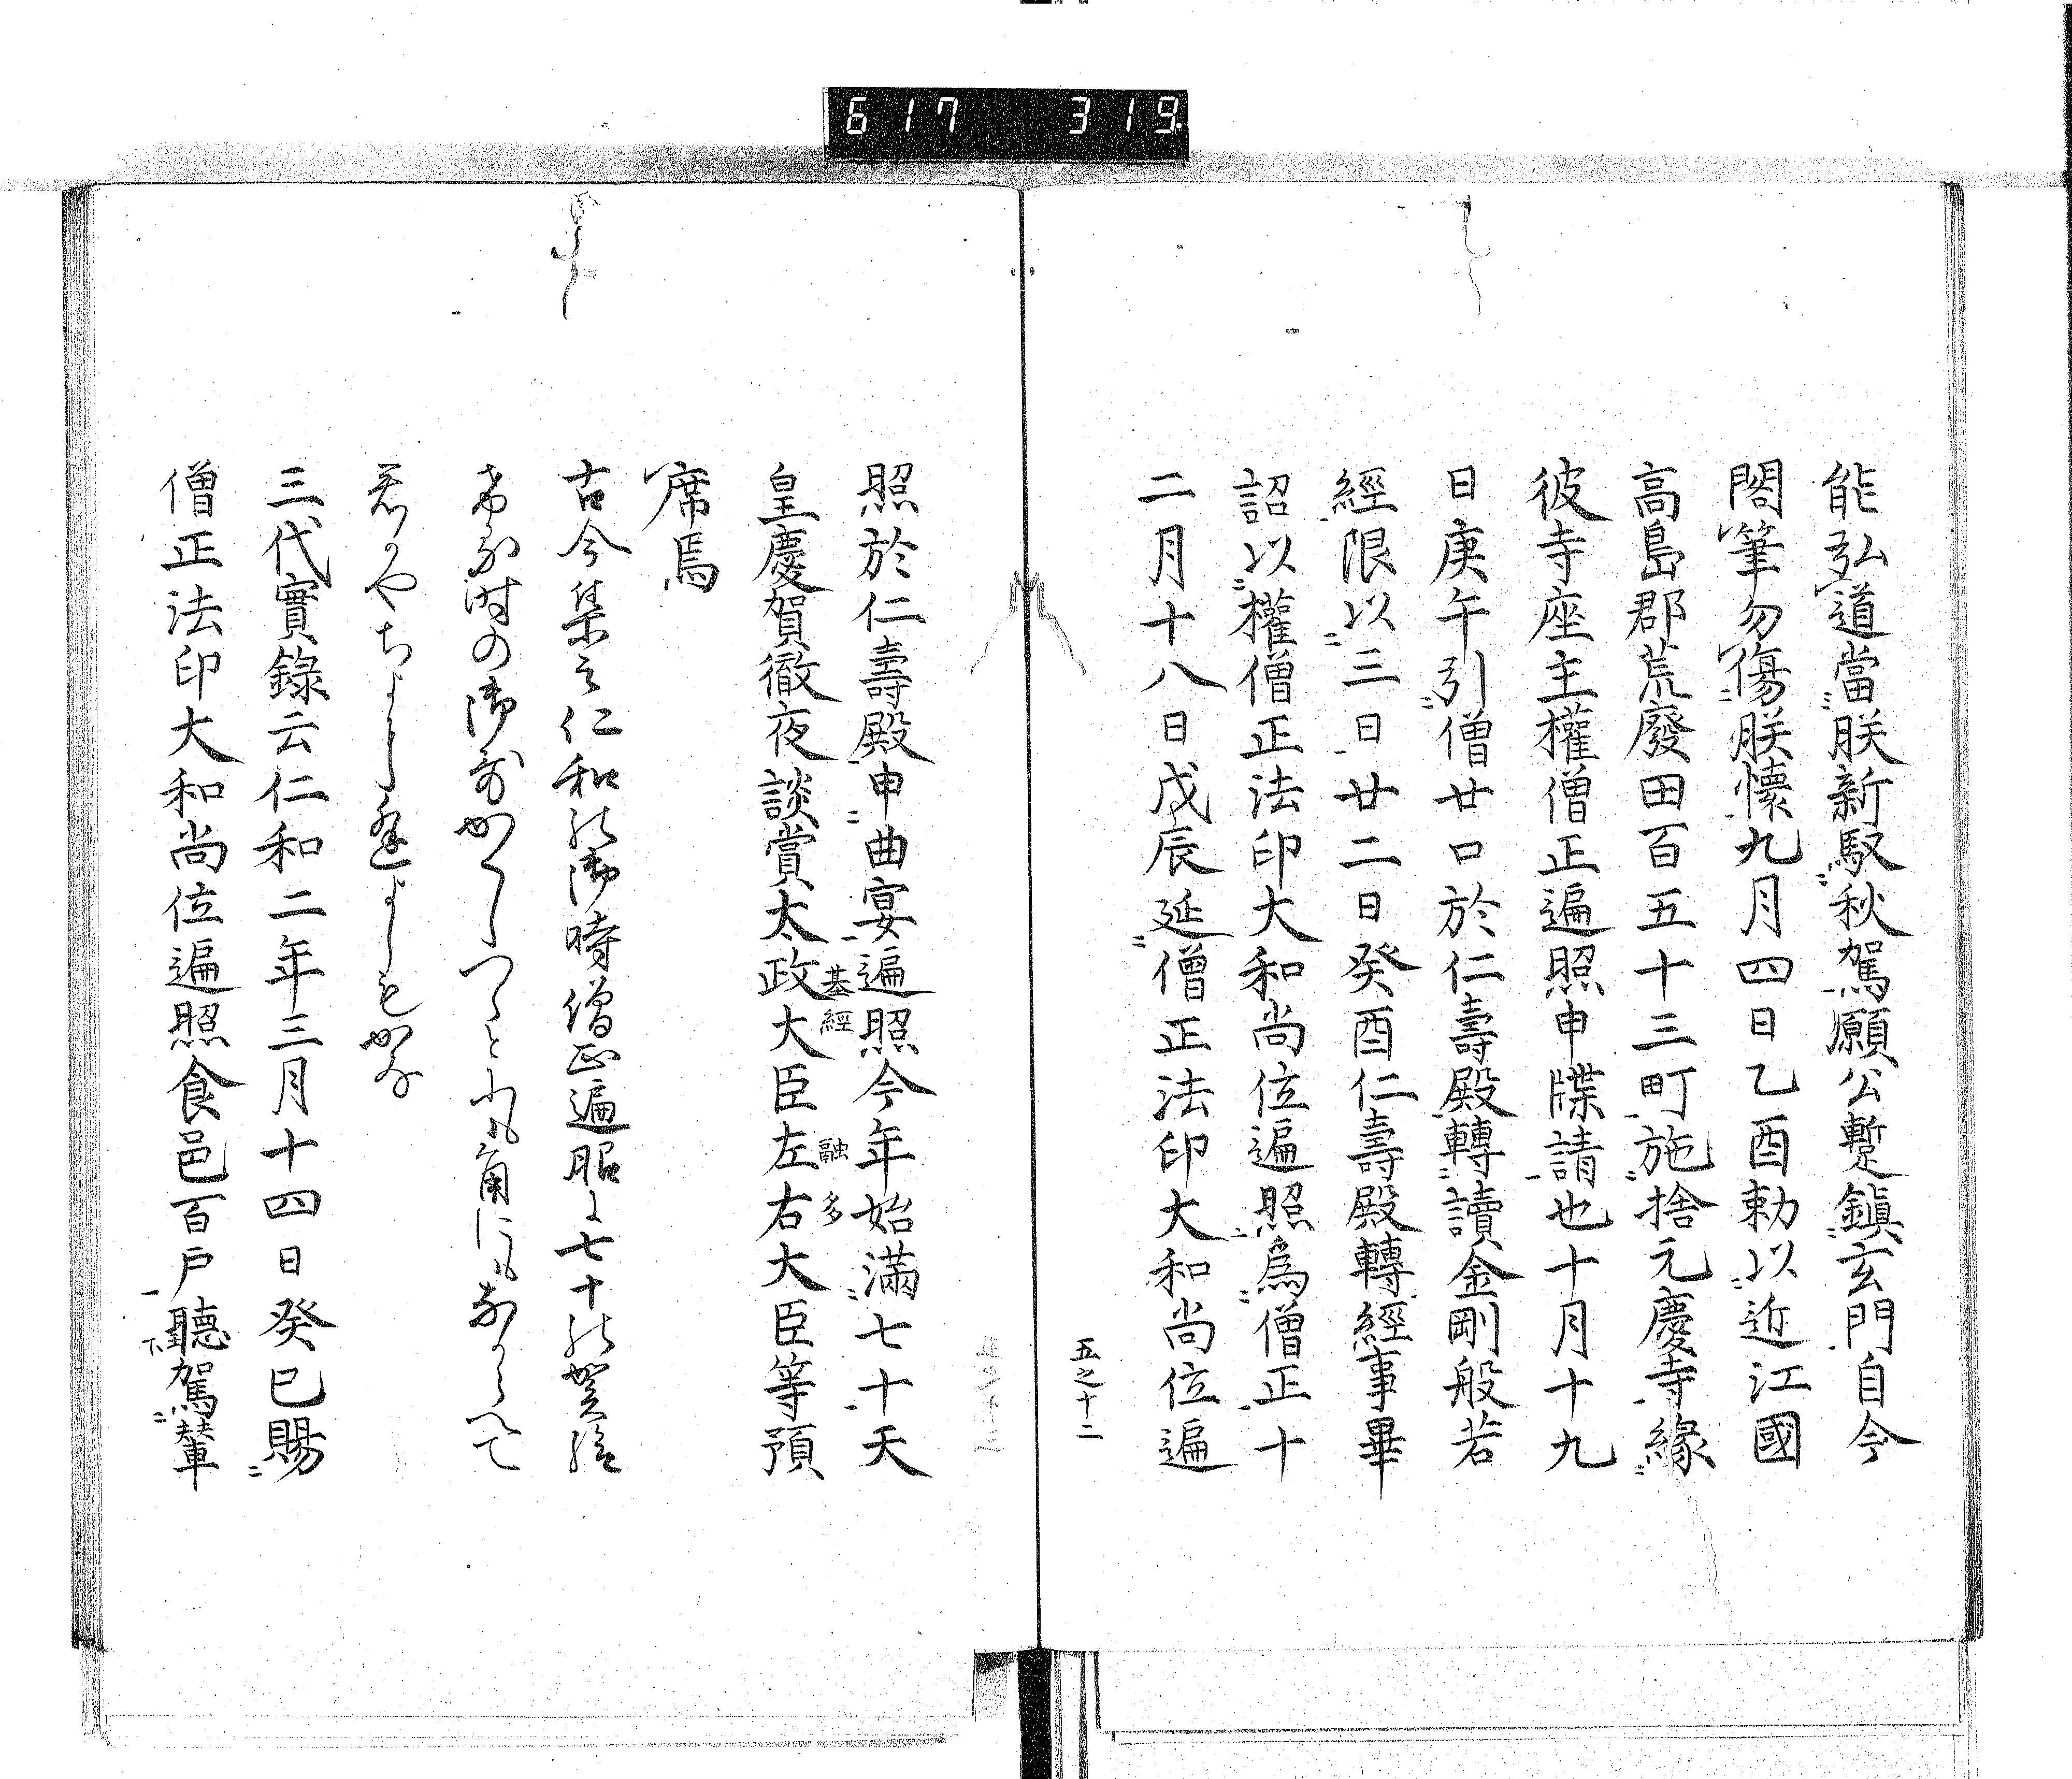 能弘道當朕新馭秋駕願公蹔鎮玄門自今
閣筆勿傷朕懷九月四日乙酉勅以近江國
高島郡荒廢田百五十三町施捨元慶寺緣
彼寺座主權僧正遍照申牒請也十月十九
日庚午引僧廿口於仁壽殿轉讀金剛般若
經限以三日廿二日癸酉仁壽殿轉經事畢
詔以權僧正法印大和尚位遍照爲僧正十
二月十八日戊辰延僧正法印大和尚位遍
五之十二
照於仁壽殿申曲宴遍照今年始滿七十天
基經 融 多
皇慶賀徹夜談賞太政大臣左右大臣等預
席焉
古今集云仁和の御時僧正遍昭に七十の賀給
ける時の御哥かくしつゝとにも角にもなからへて
君かやちよに逢よしもかな
三代實錄云仁和二年三月十四日癸巳賜
僧正法印大和尚位遍照食邑百戶聽駕輦
617 319